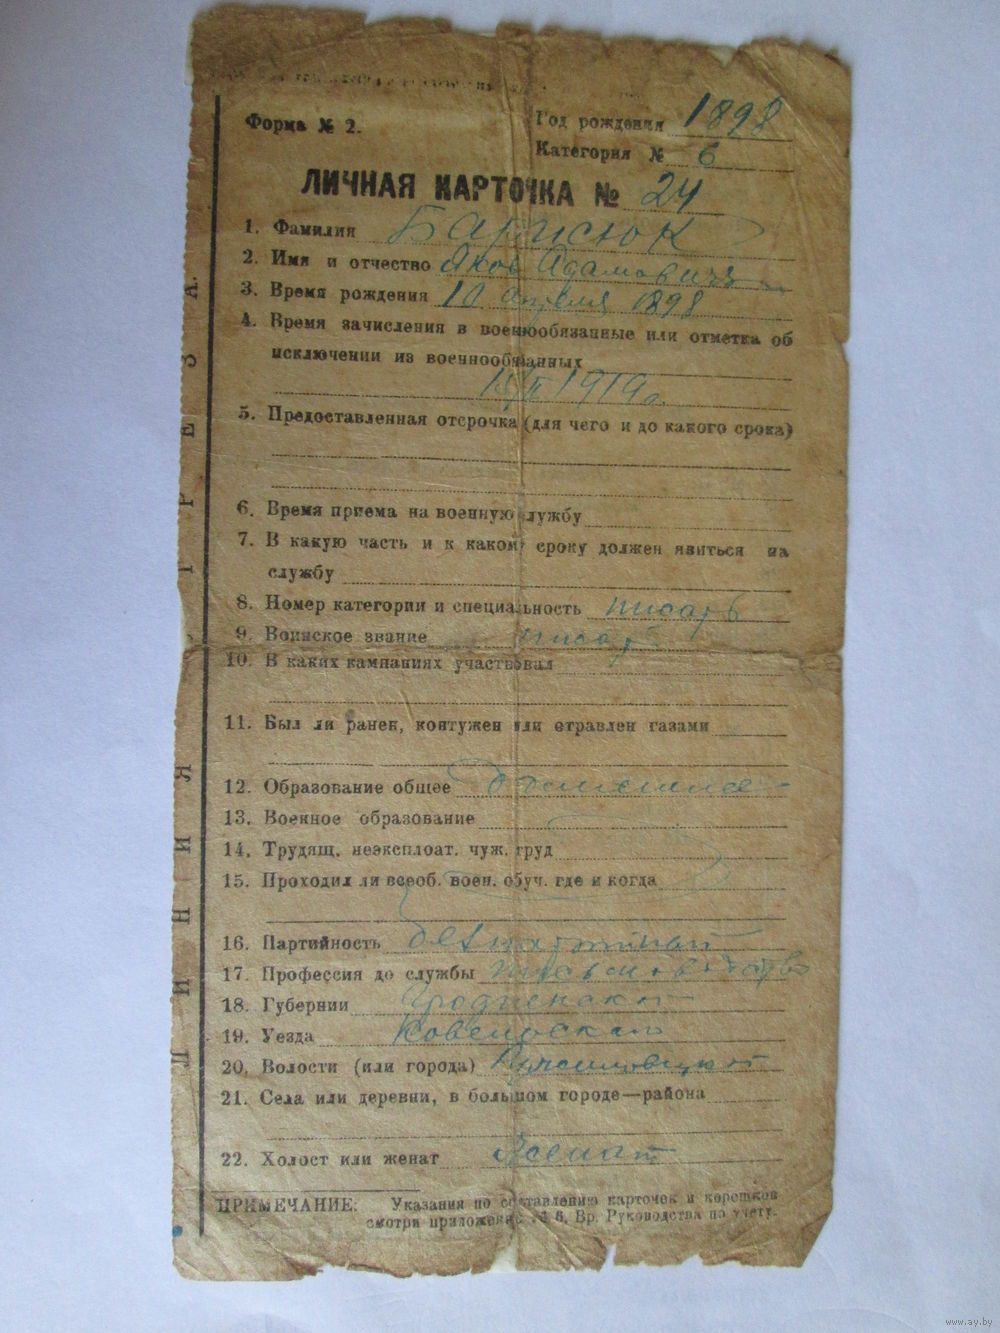 Форма № 2.
Год рождения 1898
Категория № 6
ЛИЧНАЯ КАРТОЧКА № 24
1. Фамилия
2. Имя и отчество Яков Адамович
3. Время рождения 10 апреля 1898
4. Время зачисления в военнообязанные или отметка об
исключении из военнообязанных
1919 г.
5. Предоставленная отсрочка (для чего и до какого срока)
6. Время приема на военную службу
7. В какую часть и к какому сроку должен явиться на
службу
8. Номер категории и специальность писарь
9. Воинское звание писарь
10. В каких кампаниях участвовал
11. Был ли ранен, контужен или отравлен газами
12. Образование общее домашнее
13. Военное образование
14. Трудящ. неэксплоат. чуж. труд
15. Проходил ли всеоб. воен. обуч. где и когда
16. Партийность беспартийный
17. Профессия до службы
18. Губернии Гродненской
19. Уезда
20. Волости (или города)
21. Села или деревни, в большом городе—района
22. Холост или женат Женат
ПРИМЕЧАНИЕ: Указания по составлению карточек и корешков
смотри приложение № 6. Вр. Руководства по учету.
ЛИНИЯ ОТРЕЗА.
www.ay.by